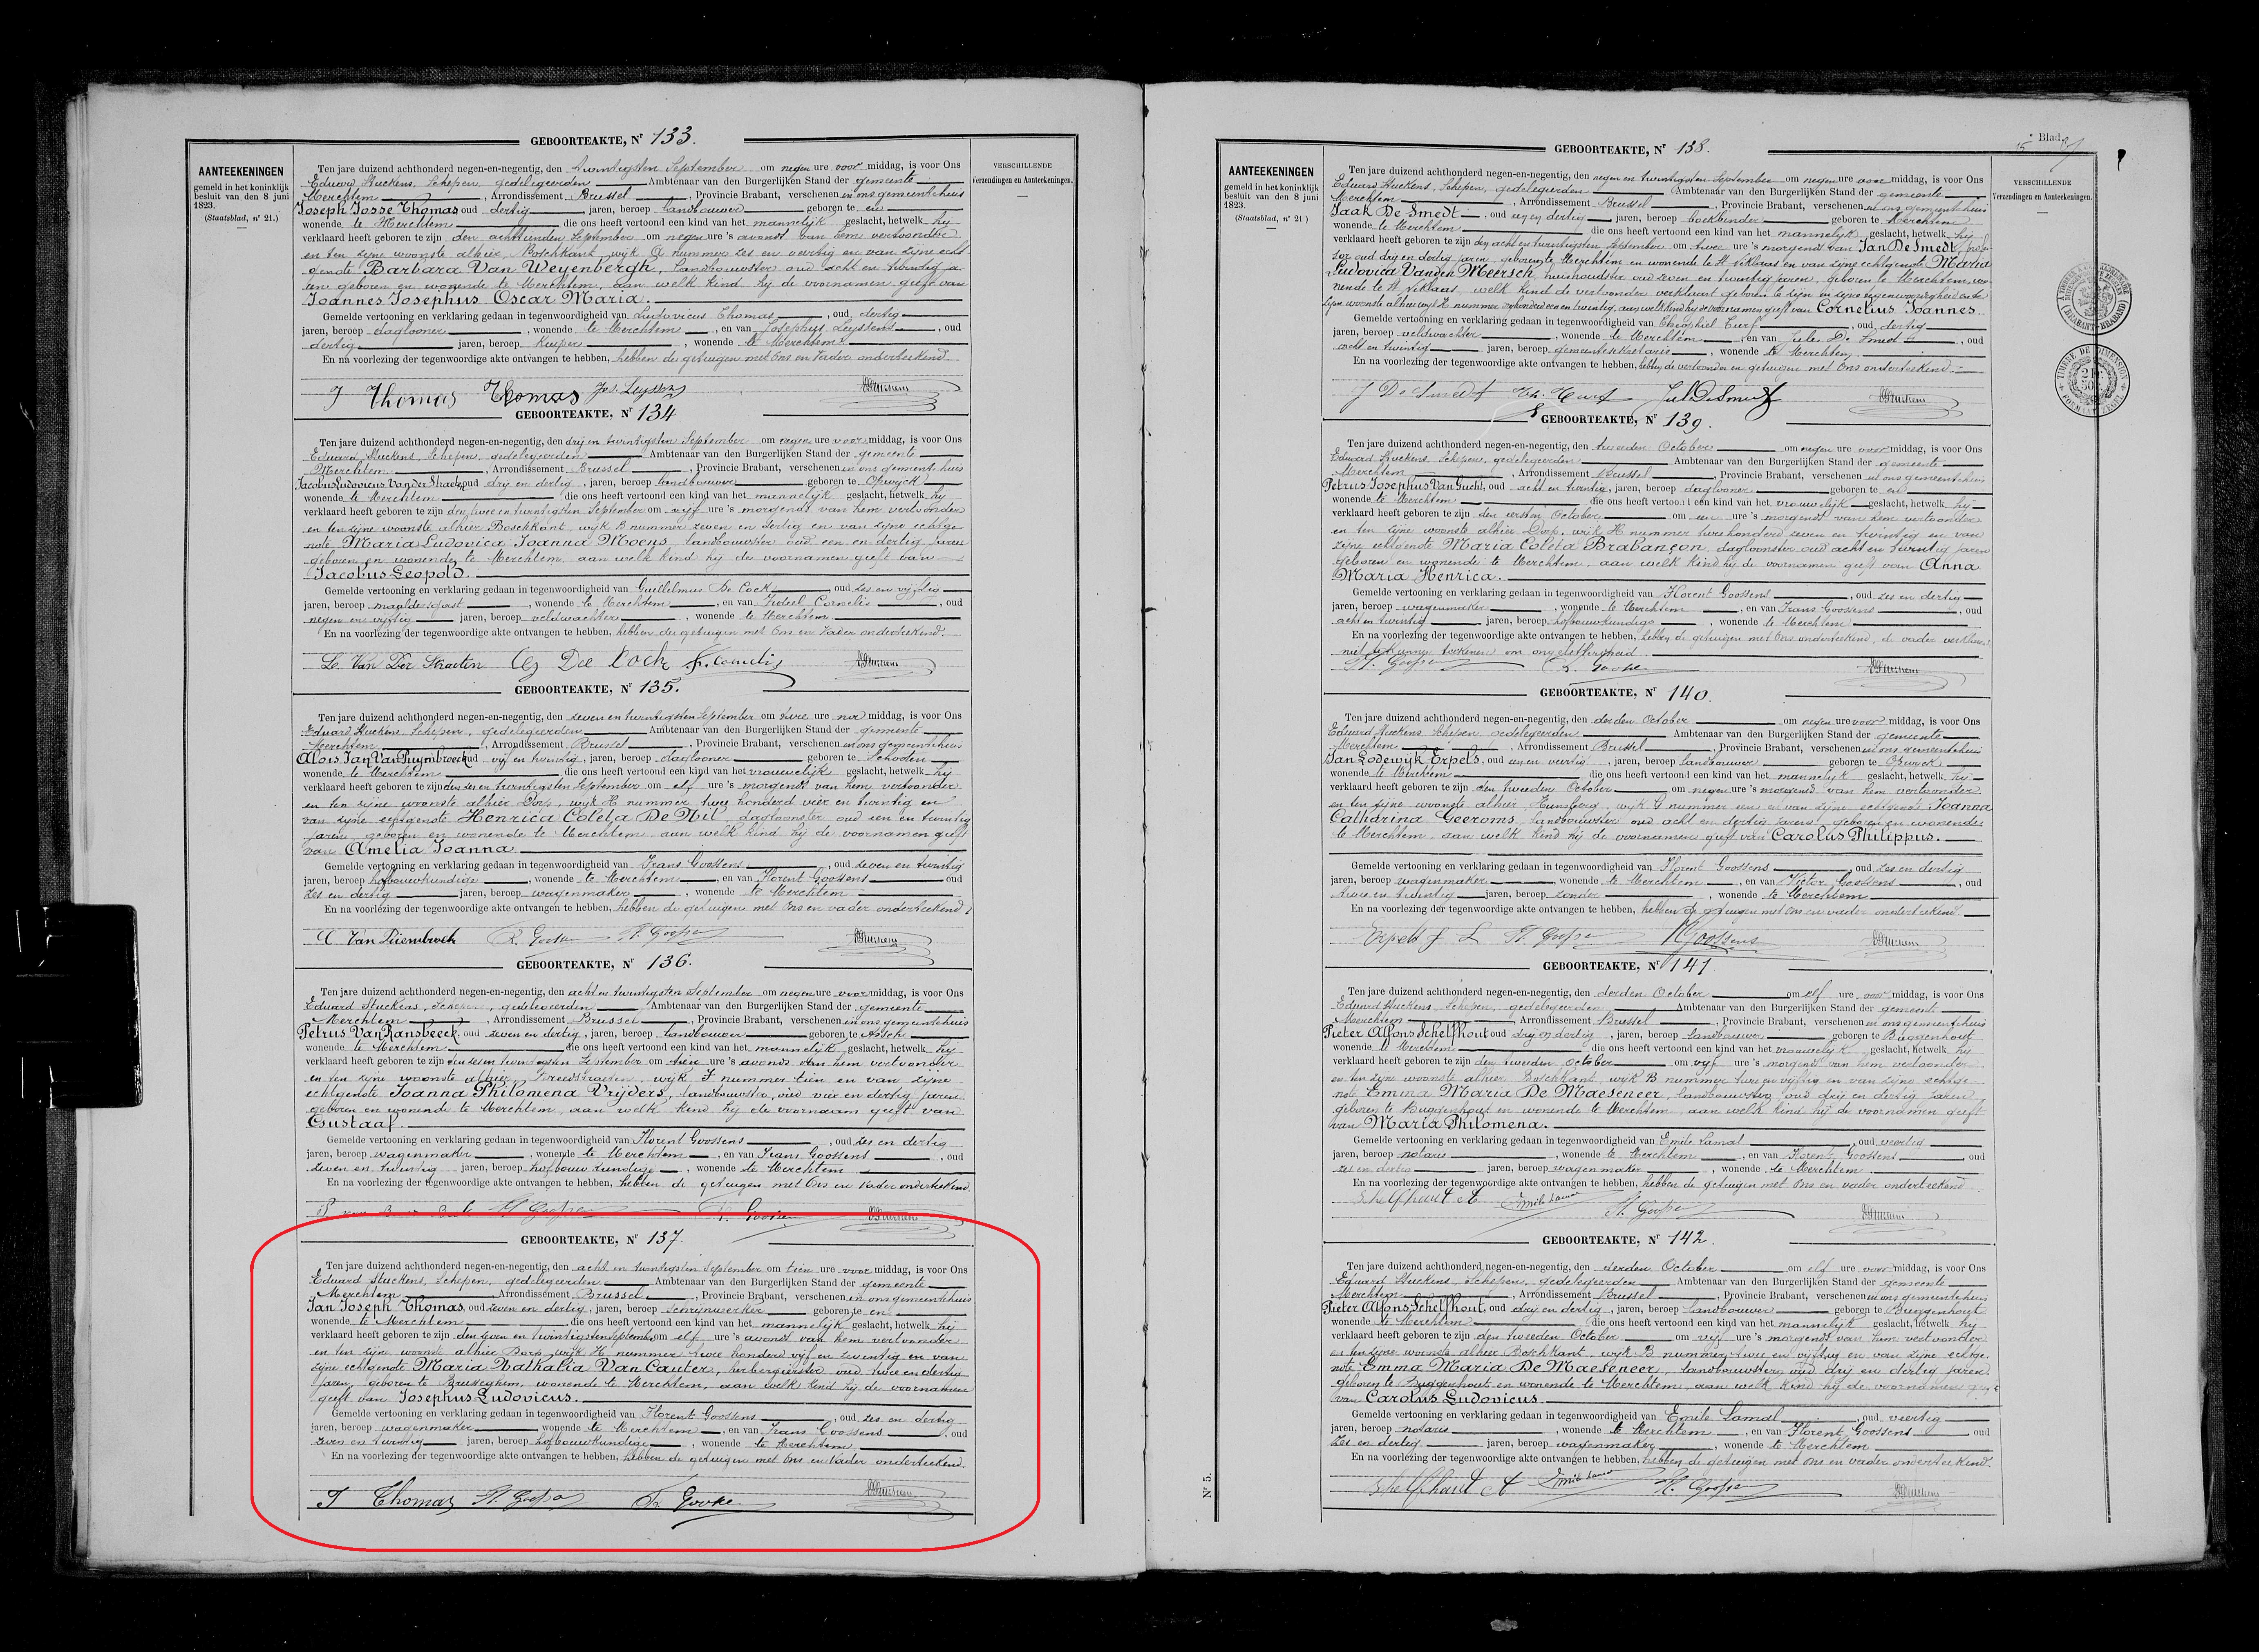 GEBOORTEAKTE, Nr 133.
AANTEEKENINGEN
gemeld in het koninklijk
besluit van den 8 juni
1823.
(Staatsblad, nr 21.)
VERSCHILLENDE
Verzendingen en Aanteekeningen.
Ten jare duizend achthonderd negen-en-negentig, den twintigsten September om negen ure voor middag, is voor Ons
Eduard Stuckens, Schepen, gedelegeerden Ambtenaar van den Burgerlijken Stand der gemeente
Merchtem, Arrondissement Brussel, Provincie Brabant, verschenen in ons gemeentehuis
Joseph Josse Thomas oud dertig jaren, beroep landbouwer geboren te en
wonende te Merchtem die ons heeft vertoond een kind van het mannelijk geslacht, hetwelk hij
verklaard heeft geboren te zijn den achttienden September om negen ure 's avonds van hem vertoonder
en ten zijne woonste alhier, Boschkant, wijk A nummer zes en veertig en van zijne echt-
genote Barbara Van Weyenbergh, landbouwster oud acht en twintig ja-
ren geboren en wonende te Merchtem, aan welk kind hij de voornamen geeft van
Joannes Josephus Oscar Maria.
Gemelde vertooning en verklaring gedaan in tegenwoordigheid van Ludovicus Thomas, oud dertig
jaren, beroep daglooner, wonende te Merchtem, en van Josephus Leystens, oud
dertig jaren, beroep kuiper, wonende te Merchtem.
En na voorlezing der tegenwoordige akte ontvangen te hebben, hebben de getuigen met Ons en Vader onderteekend.
J Thomas Thomas Jos. Leystens
GEBOORTEAKTE, Nr 134
Ten jare duizend achthonderd negen-en-negentig, den drij en twintigsten September om negen ure voor middag, is voor Ons
Eduard Stuckens, Schepen, gedelegeerden Ambtenaar van den Burgerlijken Stand der gemeente
Merchtem, Arrondissement Brussel, Provincie Brabant, verschenen in ons gemeentehuis
Jacobus Ludovicus Van der Straeten oud drij en dertig, jaren, beroep landbouwer geboren te Opwijck
wonende te Merchtem die ons heeft vertoond een kind van het mannelijk geslacht, hetwelk hij
verklaard heeft geboren te zijn den twee en twintigsten September om vijf ure 's morgends van hem vertoonder
en ten zijne woonste alhier Boschkant wijk B nummer zeven en dertig en van zijne echtge
note Maria Ludovica Joanna Moens, landbouwster oud een en dertig jaren
geboren en wonende te Merchtem, aan welk kind hij de voornamen geeft van
Jacobus Leopold.
Gemelde vertooning en verklaring gedaan in tegenwoordigheid van Guillelmus De Cock, oud zes en vijftig
jaren, beroep, wonende te Merchtem, en van Fideel Cornelis, oud
negen en vijftig jaren, beroep veldwachter, wonende te Merchtem
En na voorlezing der tegenwoordige akte ontvangen te hebben, hebben de getuigen met Ons en Vader onderteekend.
L. Van Der Straeten G De Cock F. Cornelis
GEBOORTEAKTE, Nr 135.
Ten jare duizend achthonderd negen-en-negentig, den zeven en twintigsten September om twee ure na middag, is voor Ons
Eduard Stuckens, Schepen, gedelegeerden Ambtenaar van den Burgerlijken Stand der gemeente
Merchtem, Arrondissement Brussel, Provincie Brabant, verschenen in ons gemeentehuis
Alois Jan Van Puymbroeck oud vijf en twintig, jaren, beroep dagloner geboren te Schooten
wonende te Merchtem die ons heeft vertoond een kind van het vrouwelijk geslacht, hetwelk hij
verklaard heeft geboren te zijn den zes en twintigsten September om elf ure 's morgends van hem vertoonder
en ten zijne woonste alhier Dorp, wijk H nummer twee honderd vier en twintig en
van zijne echtgenote Henrica Coleta De Nil, dagloonster oud een en twintig
jaren, geboren en wonende te Merchtem, aan welk kind hij de voornamen geeft
van Amelia Joanna
Gemelde vertooning en verklaring gedaan in tegenwoordigheid van Frans Goossens, oud zeven en twintig
jaren, beroep hofbouwkundige, wonende te Merchtem, en van Florent Goossens oud
zes en dertig jaren, beroep wagenmaker, wonende te Merchtem
En na voorlezing der tegenwoordige akte ontvangen te hebben, hebben de getuigen met Ons en vader onderteekend
GEBOORTEAKTE, Nr 136.
Ten jare duizend achthonderd negen-en-negentig, den acht en twintigsten September om negen ure voor middag, is voor Ons
Eduard Stuckens, Schepen, gedelegeerden Ambtenaar van den Burgerlijken Stand der gemeente
Merchtem, Arrondissement Brussel, Provincie Brabant, verschenen in ons gemeentehuis
Petrus Van Ransbeeck, oud zeven en dertig, jaren, beroep landbouwer geboren te Assch
wonende te Merchtem die ons heeft vertoond een kind van het mannelijk geslacht, hetwelk hij
verklaard heeft geboren te zijn den zes en twintigsten September om tien ure 's avonds van hem vertoonder
en ten zijne woonste alhier, wijk F nummer tien en van zijne
echtgenote Joanna Philomena Vrijders, landbouwster, oud vier en dertig jaren
geboren en wonende te Merchtem, aan welk kind hij de voornaam geeft van
Gustaaf.
Gemelde vertooning en verklaring gedaan in tegenwoordigheid van Florent Goossens, oud zes en dertig
jaren, beroep wagenmaker, wonende te Merchtem, en van Frans Goossens, oud
zeven en twintig jaren, beroep hofbouwkundige, wonende te Merchtem
En na voorlezing der tegenwoordige akte ontvangen te hebben, hebben de getuigen met Ons en Vader onderteekend.
GEBOORTEAKTE, Nr 137.
Ten jare duizend achthonderd negen-en-negentig, den acht en twintigsten September om tien ure voor middag, is voor Ons
Eduard Stuckens, Schepen, gedelegeerden Ambtenaar van den Burgerlijken Stand der gemeente
Merchtem, Arrondissement Brussel, Provincie Brabant, verschenen in ons gemeentehuis
Jan Joseph Thomas, oud zeven en dertig, jaren, beroep schrijnwerker geboren te en
wonende te Merchtem, die ons heeft vertoond een kind van het mannelijk geslacht, hetwelk hij
verklaard heeft geboren te zijn den zeven en twintigsten September om elf ure 's avonds van hem vertoonder
en ten zijne woonste alhier Dorp, wijk H nummer twee honderd vijf en zeventig en van
zijne echtgenote Maria Nathalia Van Cauter, herbergierster oud twee en dertig
jaren, geboren te Brusseghem, wonende te Merchtem, aan welk kind hij de voornamen
geeft van Josephus Ludovicus.
Gemelde vertooning en verklaring gedaan in tegenwoordigheid van Florent Goossens, oud zes en dertig
jaren, beroep wagenmaker wonende te Merchtem, en van Frans Goossens, oud
zeven en twintig jaren, beroep hofbouwkundige, wonende te Merchtem
En na voorlezing der tegenwoordige akte ontvangen te hebben, hebben de getuigen met Ons en Vader onderteekend.
J Thomas
Blad
GEBOORTEAKTE, Nr 138.
AANTEEKENINGEN
gemeld in het koninklijk
besluit van den 8 juni
1823.
(Staatsblad, nr 21)
VERSCHILLENDE
Verzendingen en Aanteekeningen.
Ten jare duizend achthonderd negen-en-negentig, den negen en twintigsten September om negen ure voor middag, is voor Ons
Eduard Stuckens, Schepen, gedelegeerden Ambtenaar van den Burgerlijken Stand der gemeente
Merchtem, Arrondissement Brussel, Provincie Brabant, verschenen in ons gemeentehuis
Jaak De Smedt, oud een en dertig jaren, beroep boekbinder geboren te Merchtem
wonende te Merchtem die ons heeft vertoond een kind van het mannelijk geslacht, hetwelk hij
verklaard heeft geboren te zijn den acht en twintigsten September om twee ure 's morgends van Jan De Smedt,
oud drij en dertig jaren, geboren te Merchtem en wonende te St Niklaas en van zijne echtgenote Maria
Ludovica Vanden Meersch, huishoudster oud zeven en twintig jaren, geboren te Merchtem, wo-
nende te St Niklaas, welk kind de vertoonder verklaart geboren te zijn in zijne tegenwoordigheid en te
zijne woonste alhier wijk H nummer een en twintig, aan welk kind hij de voornamen geeft van Cornelius Joannes.
Gemelde vertooning en verklaring gedaan in tegenwoordigheid van Theophiel Turf, oud dertig
jaren, beroep veldwachter, wonende te Merchtem, en van Jules De Smedt, oud
acht en twintig jaren, beroep gemeentesekretaris, wonende te Merchtem.
En na voorlezing der tegenwoordige akte ontvangen te hebben, hebben de vertoonder en getuigen met Ons onderteekend.
J De Smedt Jul De Smedt
TIMBRE DE DIMENSION
GEBOORTEAKTE, Nr 139.
Ten jare duizend achthonderd negen-en-negentig, den tweeden October om negen ure voor middag, is voor Ons
Eduard Stuckens, Schepen, gedelegeerden Ambtenaar van den Burgerlijken Stand der gemeente
Merchtem, Arrondissement Brussel, Provincie Brabant, verschenen in ons gemeentehuis
Petrus Josephus Van Gucht, oud acht en twintig, jaren, beroep dagloner geboren te en
wonende te Merchtem die ons heeft vertoond een kind van het vrouwelijk geslacht, hetwelk hij
verklaard heeft geboren te zijn den eersten October om een ure 's morgends van hem vertoonder
en ten zijne woonste alhier Dorp, wijk H nummer tweehonderd zeven en twintig en van
zijne echtgenote Maria Coleta Brabançon, dagloonster oud acht en twintig jaren
geboren en wonende te Merchtem aan welk kind hij de voornamen geeft van Anna
Maria Henrica.
Gemelde vertooning en verklaring gedaan in tegenwoordigheid van Florent Goossens, oud zes en dertig
jaren, beroep wagenmaker, wonende te Merchtem, en van Frans Goossens, oud
acht en twintig jaren, beroep hofbouwkundige, wonende te Merchtem
En na voorlezing der tegenwoordige akte ontvangen te hebben, hebben de getuigen met Ons onderteekend, de vader verklaard
niet te kunnen teekenen om ongeletterdheid.
GEBOORTEAKTE, Nr 140.
Ten jare duizend achthonderd negen-en-negentig, den derden October om negen ure voor middag, is voor Ons
Eduard Stuckens, Schepen gedelegeerden Ambtenaar van den Burgerlijken Stand der gemeente
Merchtem, Arrondissement Brussel, Provincie Brabant, verschenen in ons gemeentehuis
Jan Lodewijk Erpels, oud een en veertig, jaren, beroep landbouwer geboren te Opwijck
wonende te Merchtem die ons heeft vertoond een kind van het mannelijk geslacht, hetwelk hij
verklaard heeft geboren te zijn den tweeden October om negen ure 's morgends van hem vertoonder
en ten zijne woonste alhier, wijk G nummer een en van zijne echtgenote Joanna
Catharina Geeroms, landbouwster oud acht en dertig jaren, geboren en wonende
te Merchtem, aan welk kind hij de voornamen geeft van Carolus Philippus.
Gemelde vertooning en verklaring gedaan in tegenwoordigheid van Florent Goossens, oud zes en dertig
jaren, beroep wagenmaker, wonende te Merchtem, en van Victor Goossens, oud
twee en twintig jaren, beroep zonder, wonende te Merchtem
En na voorlezing der tegenwoordige akte ontvangen te hebben, hebben de getuigen met Ons en vader onderteekend.
Erpels J L V Goossens
GEBOORTEAKTE, Nr 141
Ten jare duizend achthonderd negen-en-negentig, den derden October om elf ure voor middag, is voor Ons
Eduard Stuckens, Schepen, gedelegeerden Ambtenaar van den Burgerlijken Stand der gemeente
Merchtem, Arrondissement Brussel, Provincie Brabant, verschenen in ons gemeentehuis
Pieter Alfons Schelfhout oud drij en dertig, jaren, beroep landbouwer geboren te Buggenhout
wonende te Merchtem die ons heeft vertoond een kind van het vrouwelijk geslacht, hetwelk hij
verklaard heeft geboren te zijn den tweeden October om vijf ure 's morgends van hem vertoonder
en ten zijne woonste alhier Boschkant, wijk B nummer twee en vijftig en van zijne echtge
note Emma Maria De Maeseneer, landbouwster oud drij en dertig jaren
geboren te Buggenhout en wonende te Merchtem aan welk kind hij de voornamen geeft
van Maria Philomena.
Gemelde vertooning en verklaring gedaan in tegenwoordigheid van Emile Lamal, oud veertig
jaren, beroep notaris, wonende te Merchtem, en van Florent Goossens oud
zes en dertig jaren, beroep wagenmaker, wonende te Merchtem
En na voorlezing der tegenwoordige akte ontvangen te hebben, hebben de getuigen met Ons en vader onderteekend
Schelfhaut A Emile Lamal
GEBOORTEAKTE, Nr 142.
Ten jare duizend achthonderd negen-en-negentig, den derden October om elf ure voor middag, is voor Ons
Eduard Stuckens, Schepen, gedelegeerden Ambtenaar van den Burgerlijken Stand der gemeente
Merchtem, Arrondissement Brussel, Provincie Brabant, verschenen in ons gemeentehuis
Pieter Alfons Schelfhout, oud drij en dertig, jaren, beroep landbouwer geboren te Buggenhout
wonende te Merchtem die ons heeft vertoond een kind van het mannelijk geslacht, hetwelk hij
verklaard heeft geboren te zijn den tweeden October om vijf ure 's morgends van hem vertoonder
en ten zijne woonste alhier Boschkant, wijk B nummer twee en vijftig en van zijne echtge-
note Emma Maria De Maeseneer, landbouwster, oud drij en dertig jaren
geboren te Buggenhout en wonende te Merchtem, aan welk kind hij de voornamen geeft
van Carolus Ludovicus
Gemelde vertooning en verklaring gedaan in tegenwoordigheid van Emile Lamal, oud veertig
jaren, beroep notaris, wonende te Merchtem, en van Florent Goossens oud
zes en dertig jaren, beroep wagenmaker, wonende te Merchtem
En na voorlezing der tegenwoordige akte ontvangen te hebben, hebben de getuigen met Ons en vader onderteekend.
Schelfhaut A Emile Lamal
Nr 5.